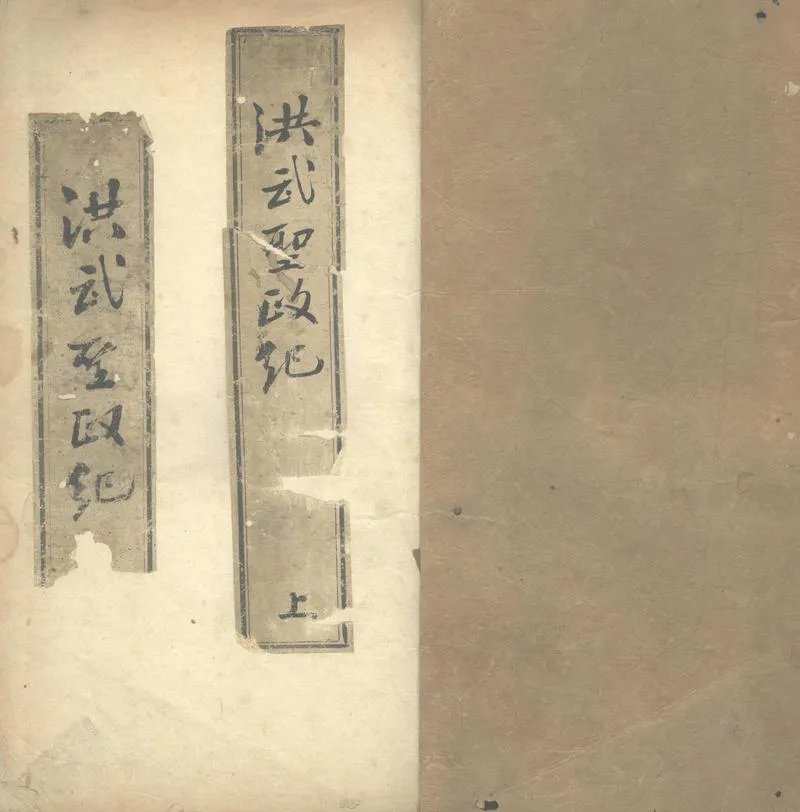 洪武聖政紀
上
洪武聖政紀